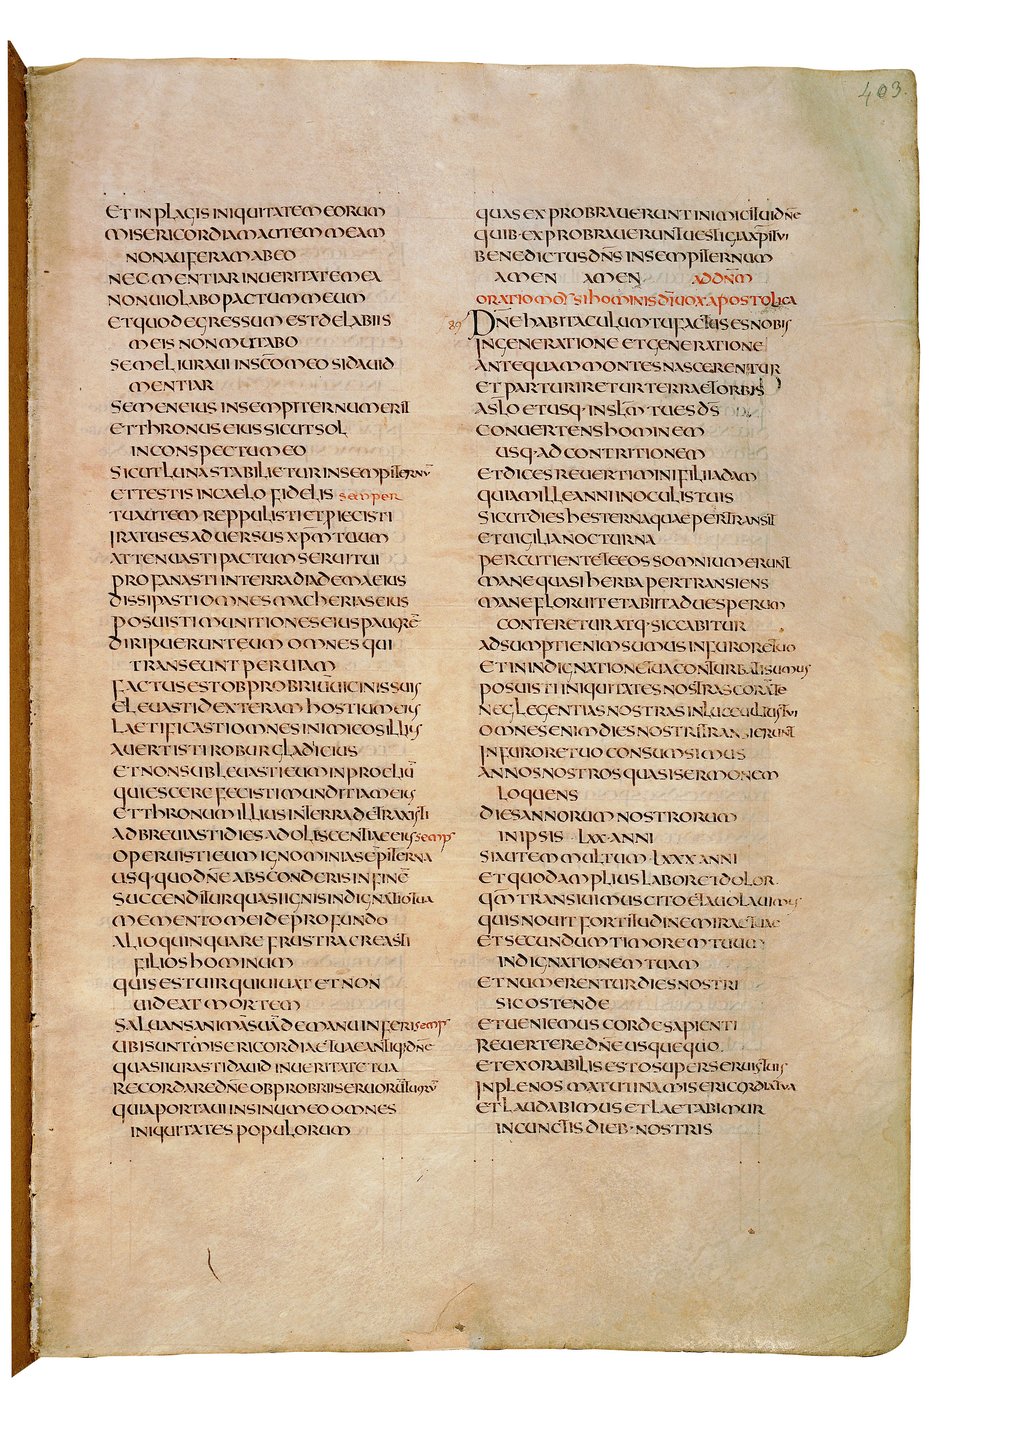 403.
ET IN PLAGIS INIQUITATEM EORUM
MISERICORDIAM AUTEM MEAM
NON AUFERAM AB EO
NEC MENTIAR IN UERITATE MEA
NON UIOLABO PACTUM MEUM
ET QUOD EGRESSUM EST DE LABIIS
MEIS NON MUTABO
SEMEL IURAUI IN SC̄O MEO SI DAUID
MENTIAR
SEMEN EIUS IN SEMPITERNUM ERIT
ET THRONUS EIUS SICUT SOL
IN CONSPECTU MEO
SICUT LUNA STABILIETUR IN SEMPITERNŪ
ET TESTIS IN CAELO FIDELIS SEMPER
TU AUTEM REPPULISTI ET PIECISTI
IRATUS ES ADUERSUS XP̄M TUUM
ATTENUASTI PACTUM SERUI TUI
PROFANASTI IN TERRA DIADEMA EIUS
DISSIPASTI OMNES MACHERIAS EIUS
POSUISTI MUNITIONES EIUS PAUORĒ
DIRIPUERUNT EUM OMNES QUI
TRANSEUNT PER UIAM
FACTUS EST OBPROBRIŪ UICINIS SUIS
ELEUASTI DEXTERAM HOSTIUM EIUS
LAETIFICASTI OMNES INIMICOS ILLIUS
AUERTISTI ROBUR GLADII EIUS
ET NON SUBLEUASTI EUM IN PROELIŪ
QUIESCERE FECISTI MUNDITIAM EIUS
ET THRONUM ILLIUS IN TERRA DETRAXISTI
ADBREUIASTI DIES ADOLISCENTIAE EIUS SEMP̄
OPERUISTI EUM IGNOMINIA SEPITERNA
USQ· QUO DN̄E ABSCONDERIS IN FINĒ
SUCCENDITUR QUASI IGNIS INDIGNATIO TUA
MEMENTO MEI DE PROFUNDO
ALIOQUIN QUARE FRUSTRA CREASTI
FILIOS HOMINUM
QUIS EST UIR QUI UIUAT ET NON
UIDEAT MORTEM
SALUANS ANIMĀ SUĀ DE MANU INFERI SEMP̄
UBI SUNT MISERICORDIAE TUAE ANTIQ· DN̄E
QUAS IURASTI DAUID IN UERITATE TUA
RECORDARE DN̄E OBPROBRII SERUORŪ TUORŪ
QUIA PORTAUI IN SINU MEO OMNES
INIQUITATES POPULORUM
QUAS EXPROBRAUERUNT INIMICI TUI DN̄E
QUIB· EXPROBRAUERUNT UESTIGIA XP̄I TUI
BENEDICTUS DN̄S IN SEMPITERNUM
AMEN AMEN AD DN̄M
ORATIO MOSI HOMINIS D̄I UOX APOSTOLICA
89 DN̄E HABITACULUM TU FACTUS ES NOBIS
IN GENERATIONE ET GENERATIONE
ANTEQUAM MONTES NASCERENTUR
ET PARTURIRETUR TERRA ET ORBIS
A SL̄O ET USQ· IN SL̄M TU ES D̄S
CONUERTENS HOMINEM
USQ· AD CONTRITIONEM
ET DICES REUERTIMINI FILII ADAM
QUIA MILLE ANNI IN OCULIS TUIS
SICUT DIES HESTERNA QUAE PERTRANSIIT
ET UIGILIA NOCTURNA
PERCUTIENTE TE EOS SOMNIUM ERUNT
MANE QUASI HERBA PERTRANSIENS
MANE FLORUIT ET ABIIT AD UESPERUM
CONTERETUR ATQ· SICCABITUR
ADSUMPTI ENIM SUMUS IN FURORE TUO
ET IN INDIGNATIONE TUA CONTURBATI SUMUS
POSUISTI INIQUITATES NOSTRAS CORĀ TE
NEGLEGENTIAS NOSTRAS IN LUCE UULTUS TUI
OMNES ENIM DIES NOSTRI TRANSIERUNT
IN FURORE TUO CONSUMSIMUS
ANNOS NOSTROS QUASI SERMONEM
LOQUENS
DIES ANNORUM NOSTRORUM
IN IPSIS · LXX · ANNI
SI AUTEM MULTUM · LXXX ANNI
ET QUOD AMPLIUS LABOR ET DOLOR
QM̄ TRANSIUIMUS CITO ET AUOLAUIMUS
QUIS NOUIT FORTITUDINEM IRAE TUAE
ET SECUNDUM TIMOREM TUUM
INDIGNATIONEM TUAM
ET NUMERENTUR DIES NOSTRI
SIC OSTENDE
ET UENIEMUS CORDE SAPIENTI
REUERTERE DN̄E USQUEQUO
ET EXORABILIS ESTO SUPER SERUIS TUIS
INPLE NOS MATUTINA MISERICORDIA TUA
ET LAUDABIMUS ET LAETABIMUR
IN CUNCTIS DIEB· NOSTRIS